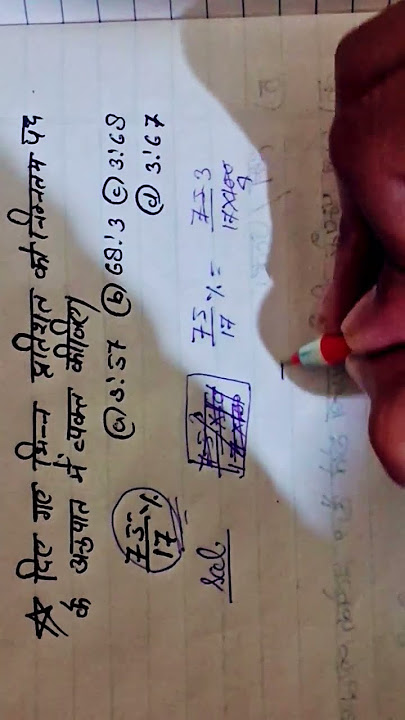 ☆ दिए गए भिन्न प्रतिशत को निम्नतम पद
के अनुपात में व्यक्त कीजिए।
75/17 % (a) 3:57 (b) 68:3 (c) 3:68
(d) 3:67
Sol. 75/17 % = 75 3/17×100 4